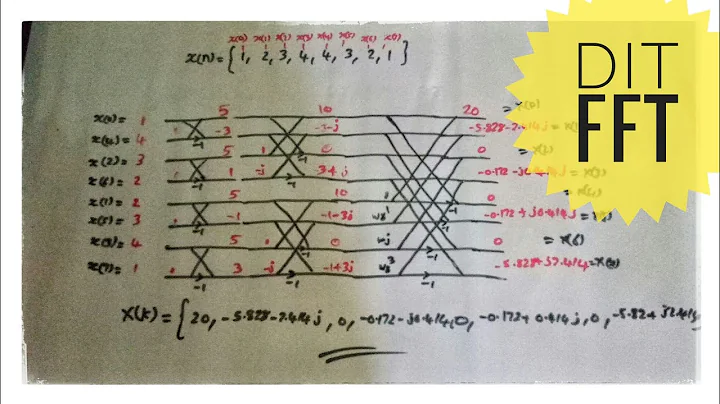 DIT
FFT
x(0) x(1) x(2) x(3) x(4) x(5) x(6) x(7)
x(n) = { 1, 2, 3, 4, 4, 3, 2, 1 }
x(0) = 1 5 10 20 = X(0)
x(4) = 4 -1 -3 -3-j -5.828-2.414j =
x(2) = 3 5 1 -1 0 0 =
x(6) = 2 -1 1 -j -1 -3+j -0.172-j0.414j =
x(1) = 2 5 10 -1 0 =
x(5) = 3 -1 -1 -1-3j -1 -0.172+j0.414j =
x(3) = 4 5 1 -1 0 -1 0 = X(6)
x(7) = 1 -1 3 -j -1 -1+3j -1 -5.828+j2.414 =
X(k) = { 20, -5.828-2.414j, 0, -0.172-j0.414, 0, -0.172+0.414j, 0, -5.82+j2.414